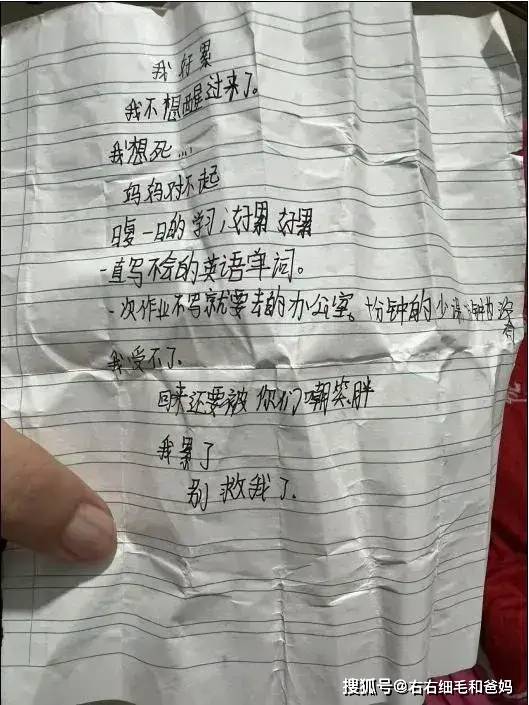 我好累
我不想醒过来了。
我想死...
妈妈对不起
日复一日的学习,好累 好累
一直写不会的英语单词。
一次作业不写就要去的办公室。十分钟的
我受不了
回来还要被你们嘲笑胖
我累了
别救我了.
搜狐号@右右细毛和爸妈